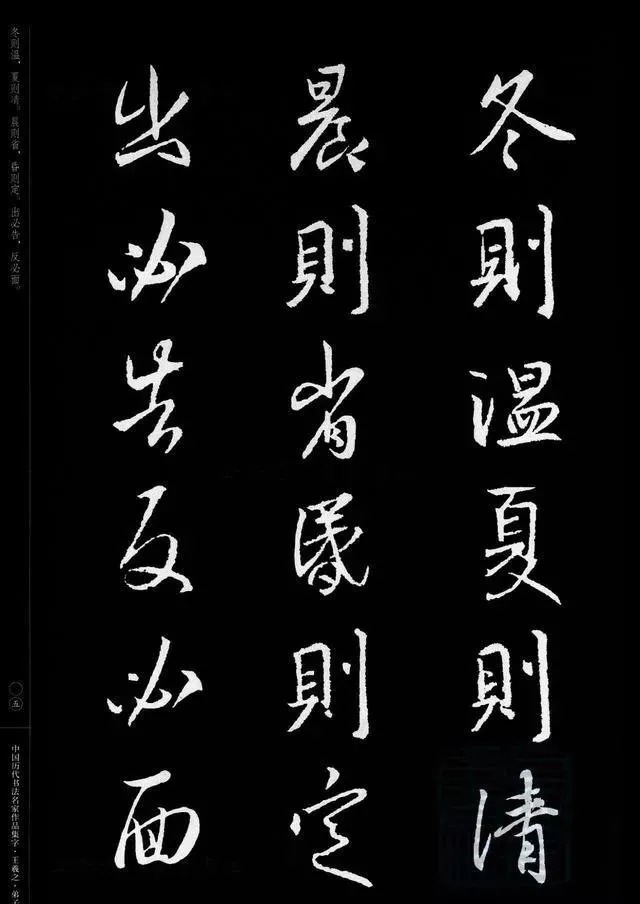 冬則溫夏則清
晨則省昏則定
出必告反必面
冬则温，夏则凊。晨则省，昏则定。出必告，反必面。
〇五
中国历代书法名家作品集字·王羲之·弟子